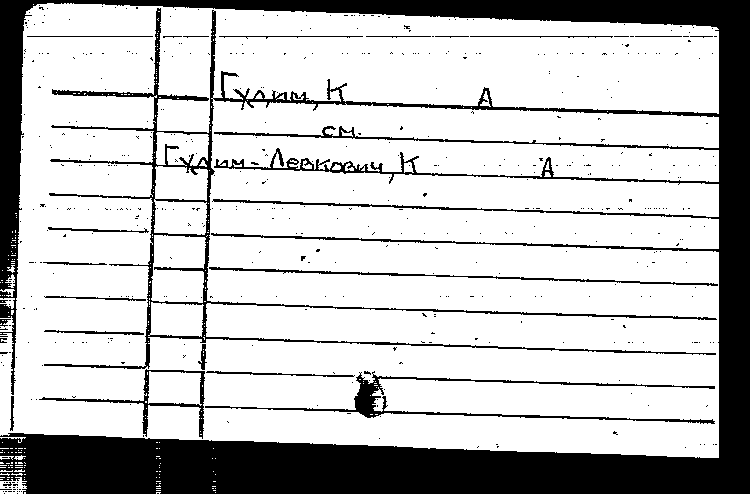 Гудим, К А
см.
Гудим-Левкович, К А